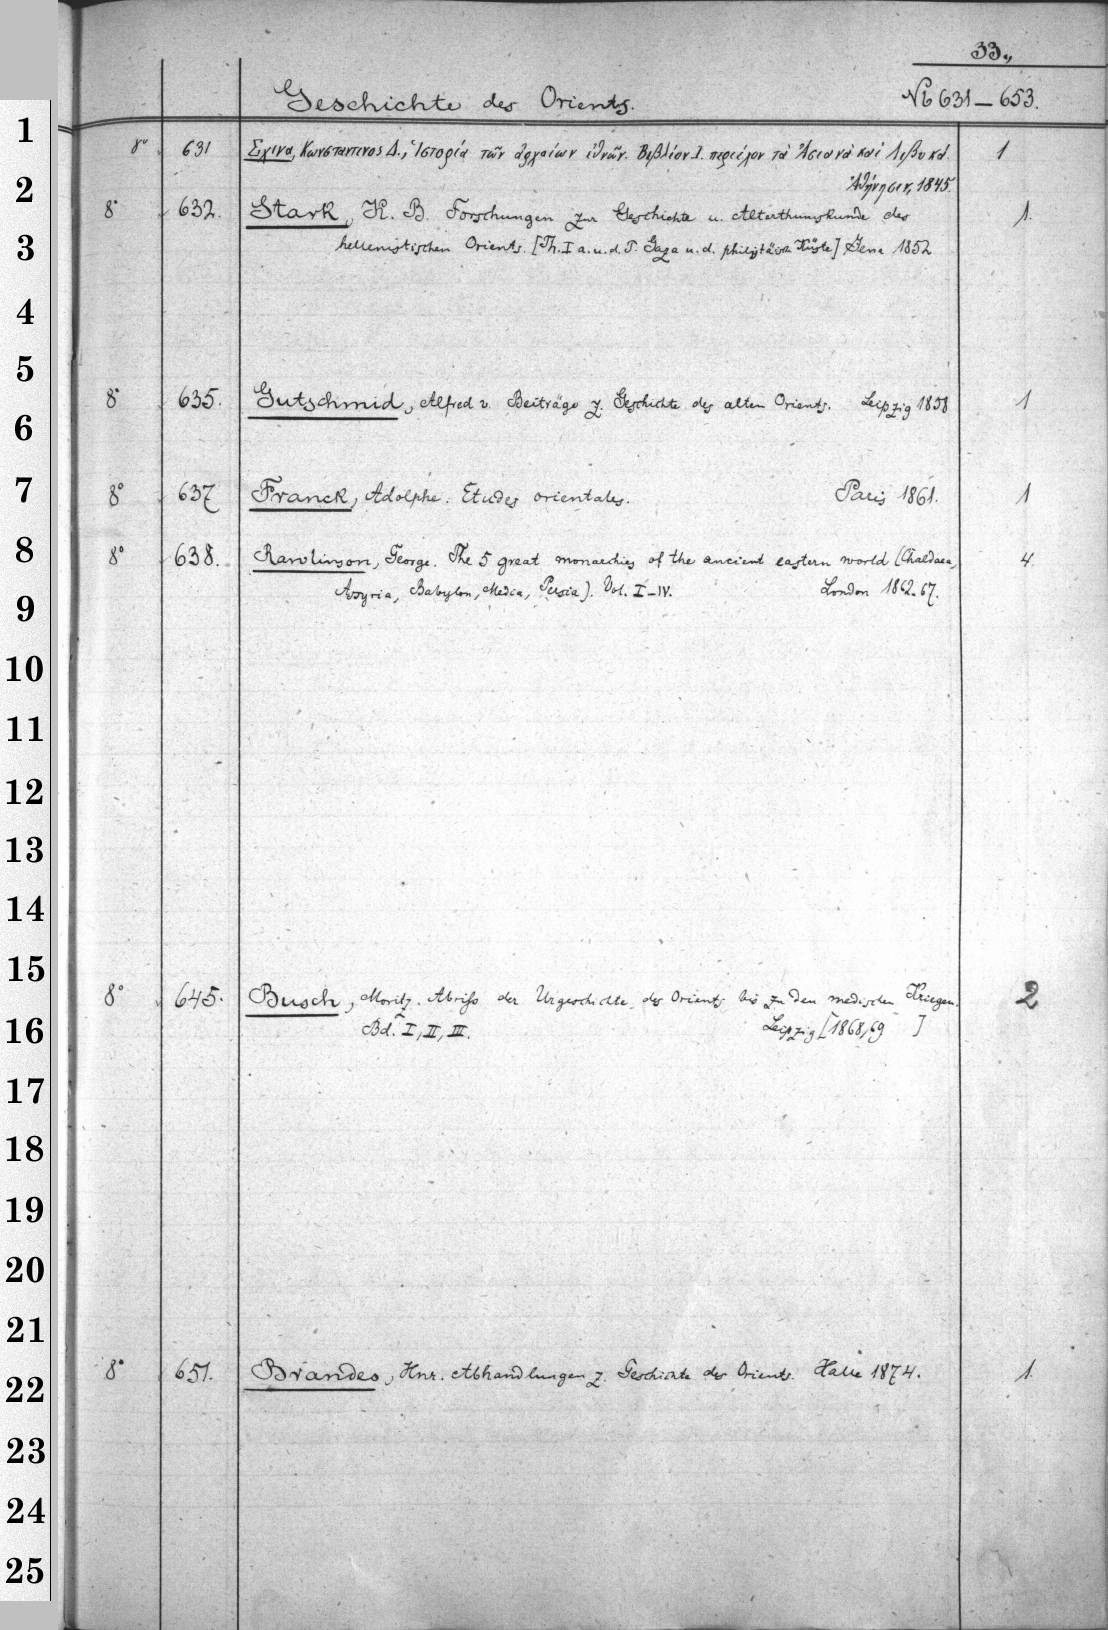 33.
Geschichte des Orients. № 631—653.
8° 631 Σχινα, Κωνσταντινος Δ., Ἱστορία τῶν ἀρχαίων ἐθνῶν. Βιβλίον I. περιέχον τὰ Ἀσιανὰ καὶ Λιβυκά. 1
Ἀθήνησιν, 1845.
8° 632. Stark, K. B. Forschungen zur Geschichte u. Alterthumskunde des 1.
hellenistischen Orients. [Th. I a. u. d. T. Gaza u. d. philistäisch. Küste] Jena 1852
8° 635. Gutschmid, Alfred v. Beiträge z. Geschichte des alten Orients. Leipzig 1858 1
8° 637 Franck, Adolphe. Etudes orientales. Paris 1861. 1
8° 638. Rawlinson, George. The 5 great monarchies of the ancient eastern world (Chaldaea, 4.
Assyria, Babylon, Media, Persia). Vol. I–IV. London 1862-67.
8° 645. Busch, Moritz. Abriss der Urgeschichte des Orients bis zu den medischen Kriegen. 2
Bd. I, II, III. Leipzig [1868,69 ]
8° 651. Brandes, Hnr. Abhandlungen z. Geschichte des Orients. Halle 1874. 1.
1
2
3
4
5
6
7
8
9
10
11
12
13
14
15
16
17
18
19
20
21
22
23
24
25